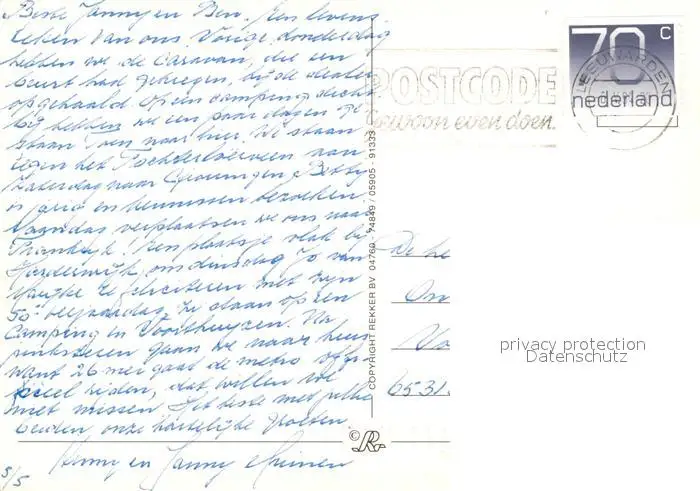 Beste Janny en Ben. Een levens
teken van ons. Vorige donderdag
hebben we de caravan, die een
beurt had gekregen, bij de dealer
opgehaald. Op een camping dicht
bij hebben we een paar dagen ge
staan. Toen naar hier. We staan
tegen het aan
Zaterdag naar Groningen, Betsy
is jarig en kennissen bezoeken.
Maandag verplaatsen we ons naar
! Een plaatsje vlak bij
Harderwijk, om dinsdag Jo van
te feliciteren met zijn
50e verjaardag. Zij staan op een
Camping in Voorthuyzen. Na
pinksteren gaan we naar huis
want 26 mei gaat de metro offi-
cieel rijden, dat willen we
niet missen. Het beste met jullie
beiden, onze hartelijke groeten.
en Janny
5/5
COPYRIGHT REKKER BV 04760 - 74849 / 05905 - 91333
R
70 C
nederland
LEEUWARDEN
POSTCODE
Gewoon even doen.
De he
On
Va
6531
privacy protection
Datenschutz